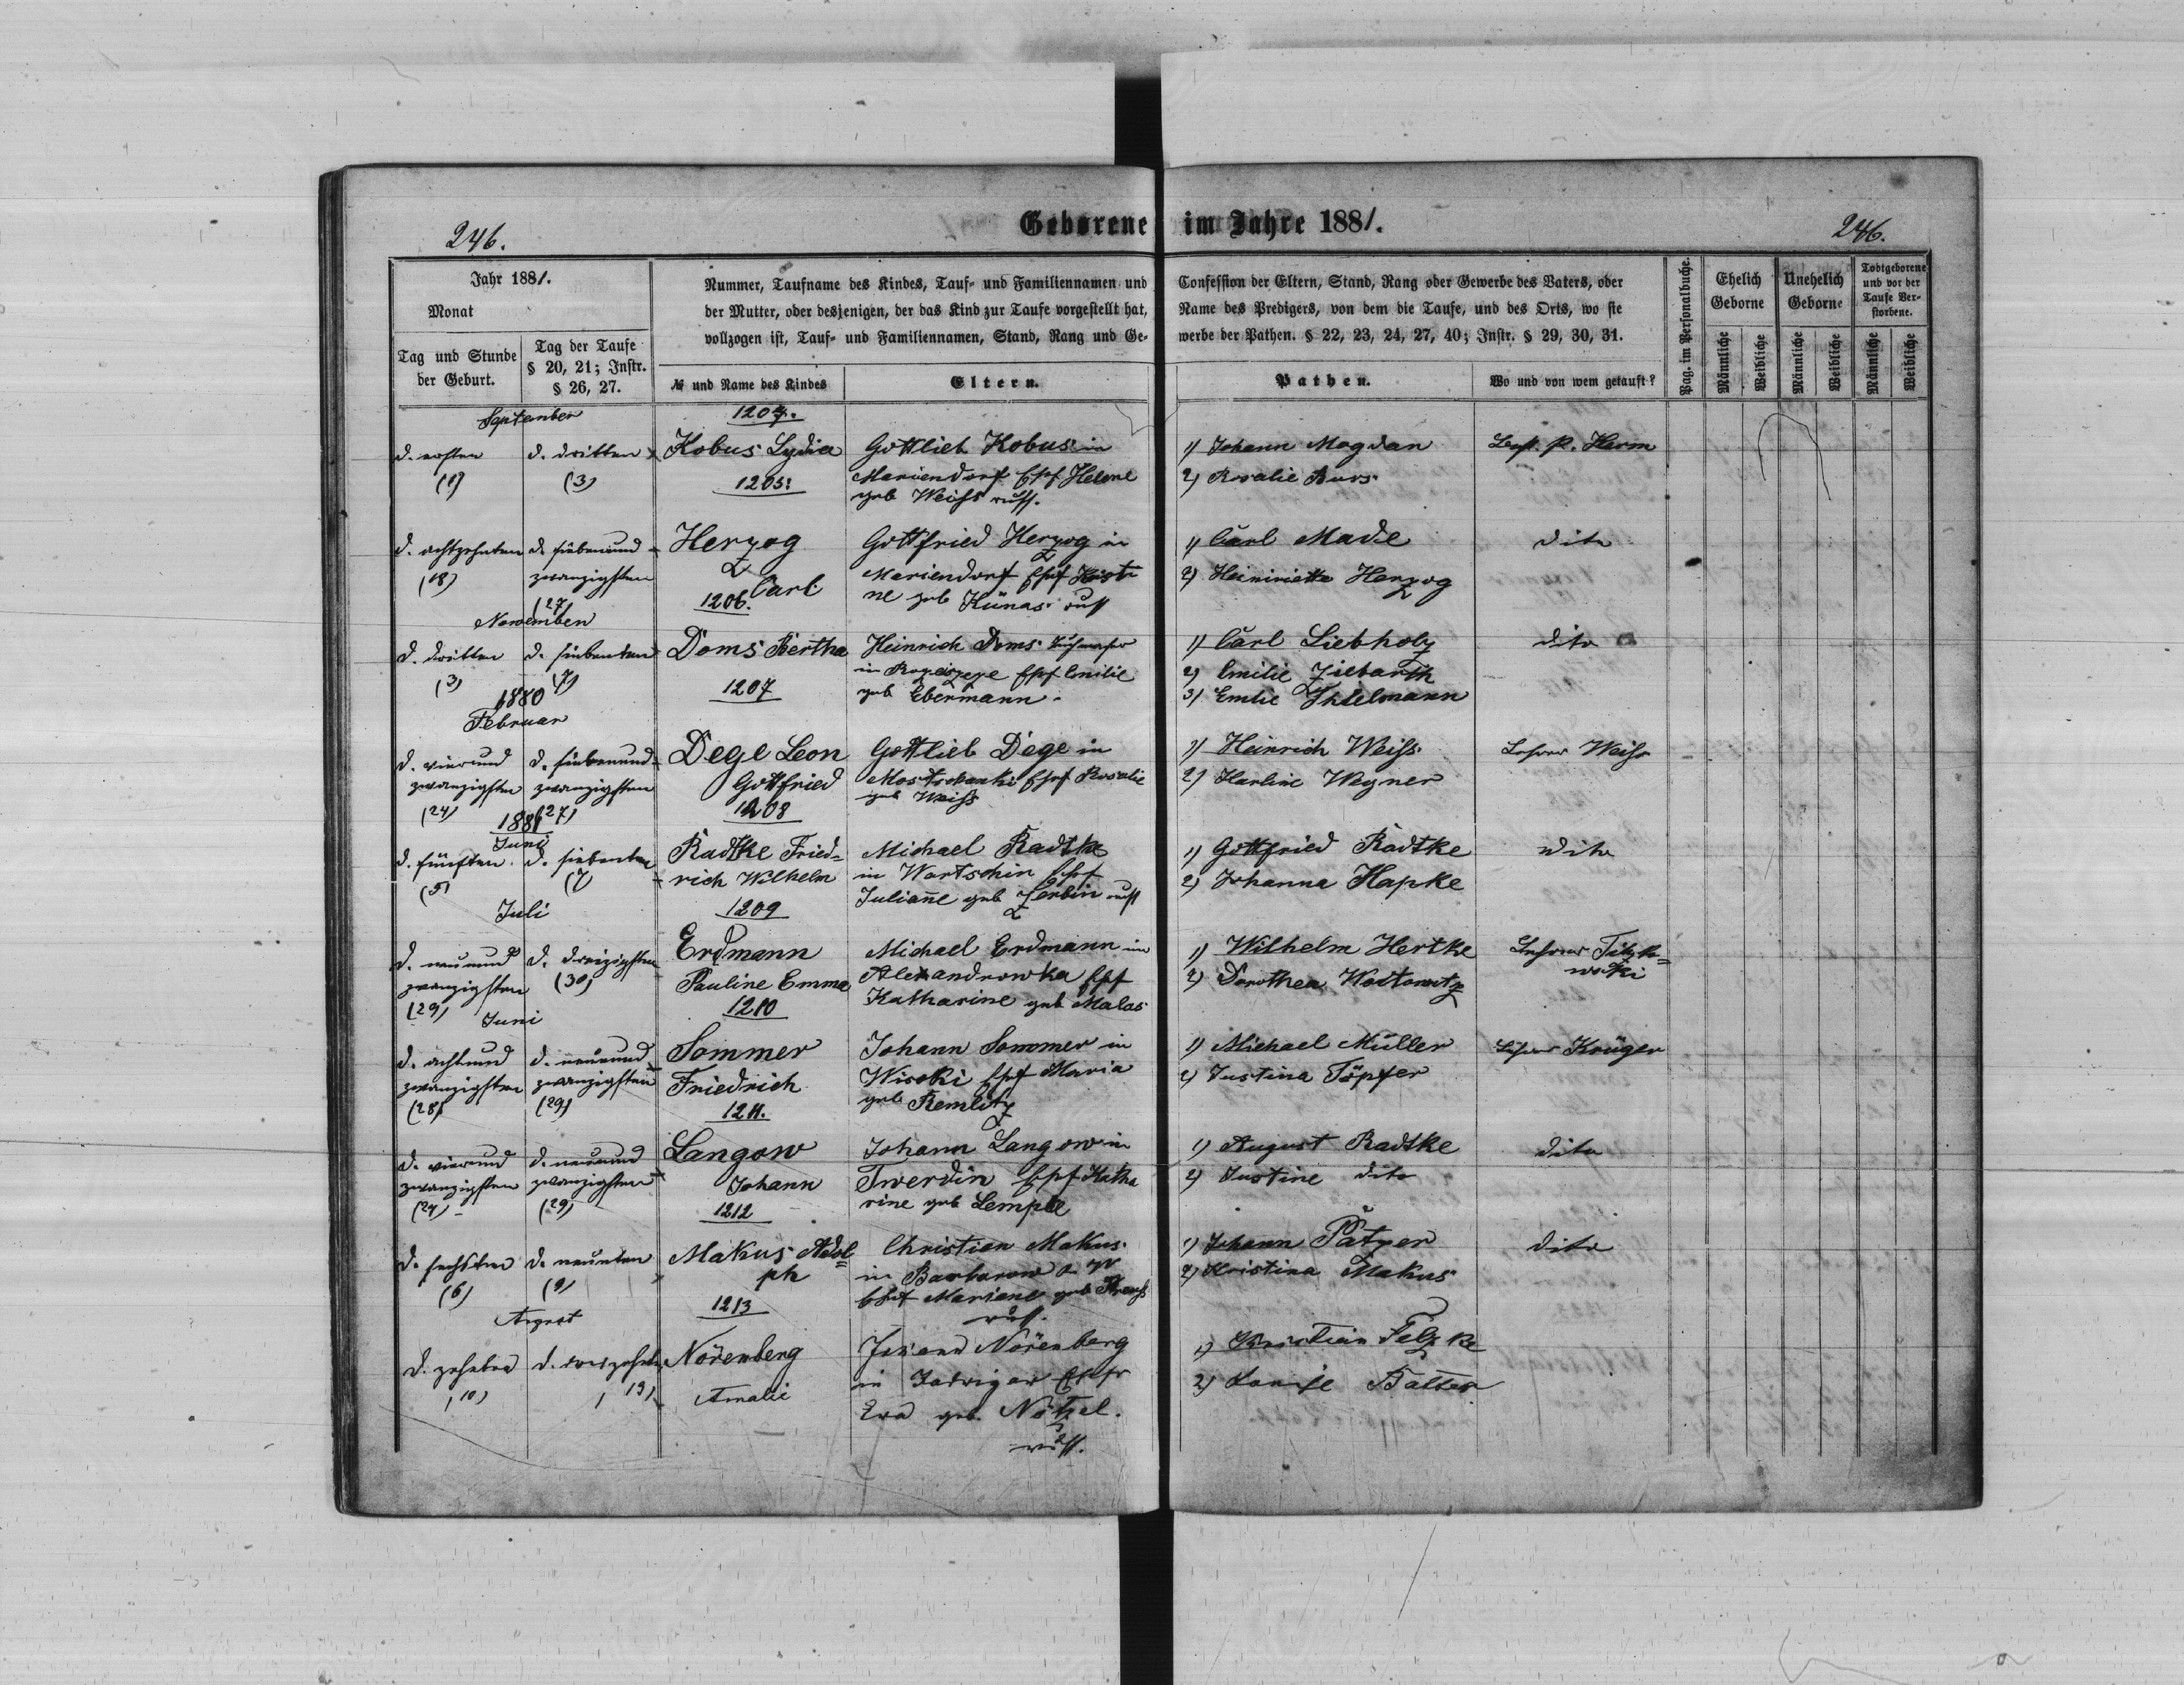 246.
Geborene im Jahre 1881.
246.
Jahr 1881.
Monat
Tag und Stunde
der Geburt.
Tag der Taufe
§ 20, 21; Instr.
§ 26, 27.
Nummer, Taufname des Kindes, Tauf- und Familiennamen und
der Mutter, oder desjenigen, der das Kind zur Taufe vorgestellt hat,
vollzogen ist, Tauf- und Familiennamen, Stand, Rang und Ge-
№ und Name des Kindes
Eltern.
Confession der Eltern, Stand, Rang oder Gewerbe des Vaters, oder
Name des Predigers, von dem die Taufe, und des Orts, wo sie
werbe der Pathen. § 22, 23, 24, 27, 40; Instr. § 29, 30, 31.
Pathen.
Wo und von wem getauft?
Pag. im Personalbuche.
Ehelich
Geborne
Unehelich
Geborne
Todtgeborene
und vor der
Taufe Ver-
storbene.
Männliche
Weibliche
Männliche
Weibliche
Männliche
Weibliche
September
1204.
d. ersten
(1)
d. dritten
(3)
Kobus Lydia
Gottlieb Kobus in
Mariendorf Ehf Helene
geb Weiss russ.
1) Johann Magdan
2) Rosalie Buss
P. Herm
1205.
d. achtzehnten
(18)
d. siebenund
zwanzigsten
(27)
Herzog
Carl
Gottfried Herzog in
Mariendorf Ehf Kristi
ne geb Künas russ
1) Carl Made
2) Heinriette Herzog
dito
November
1206.
d. dritten
(3)
d. siebenten
(7)
Doms Bertha
Heinrich Doms
in Ehf Emilie
geb Ebermann
1) Carl Liebholz
2) Emilie Ziebarth
3) Emilie Thielmann
dito
1880
Februar
1207
d. vierund
zwanzigsten
(24)
d. siebenund
zwanzigsten
(27)
Dege Leon
Gottfried
Gottlieb Dege in
Mostschanki Ehf Rosalie
geb Weiss
1) Heinrich Weiss
2) Karline Wegner
Lehrer Weiss
1881
Juni
1208
d. fünften
(5)
d. siebenten
(7)
Radtke Fried=
rich Wilhelm
Michael Radtke
in Wortschin Ehf
Juliane geb Zerbin russ
1) Gottfried Radtke
2) Johanna Hapke
dito
Juli
1209
d. neunund
zwanzigsten
(29)
d. dreizigsten
(30)
Erdmann
Pauline Emma
Michael Erdmann in
Alexandrowka Ehf
Katharine geb Malas
1) Wilhelm Hertke
2) Dorothea Woitowitz
Lehrer
Juni
1210
d. achtund
zwanzigsten
(28)
d. neunund
zwanzigsten
(29)
Sommer
Friedrich
Johann Sommer in
Wisoki Ehf Maria
geb Remlitz
1) Michael Müller
2) Justina Töpfer
Lehrer Krüger
1211.
d. vierund
zwanzigsten
(24)
d. neunund
zwanzigsten
(29)
Langow
Johann
Johann Langow in
Twerdin Ehf Katha
rine geb Lempke
1) August Radtke
2) Justine dito
dito
1212
d. sechsten
(6)
d. neunten
(9)
Makus Adol=
ph
Christian Makus
in
Ehf Mariane geb
russ.
1) Johann Patzer
2) Kristina Makus
dito
August
1213
d. zehnten
(10)
d.
Nörenberg
Amalie
Johann Nörenberg
in Jadwigow Ehfr
Eva geb. Nötzel.
russ.
1) Kristian Felzke
2) Louise Balter